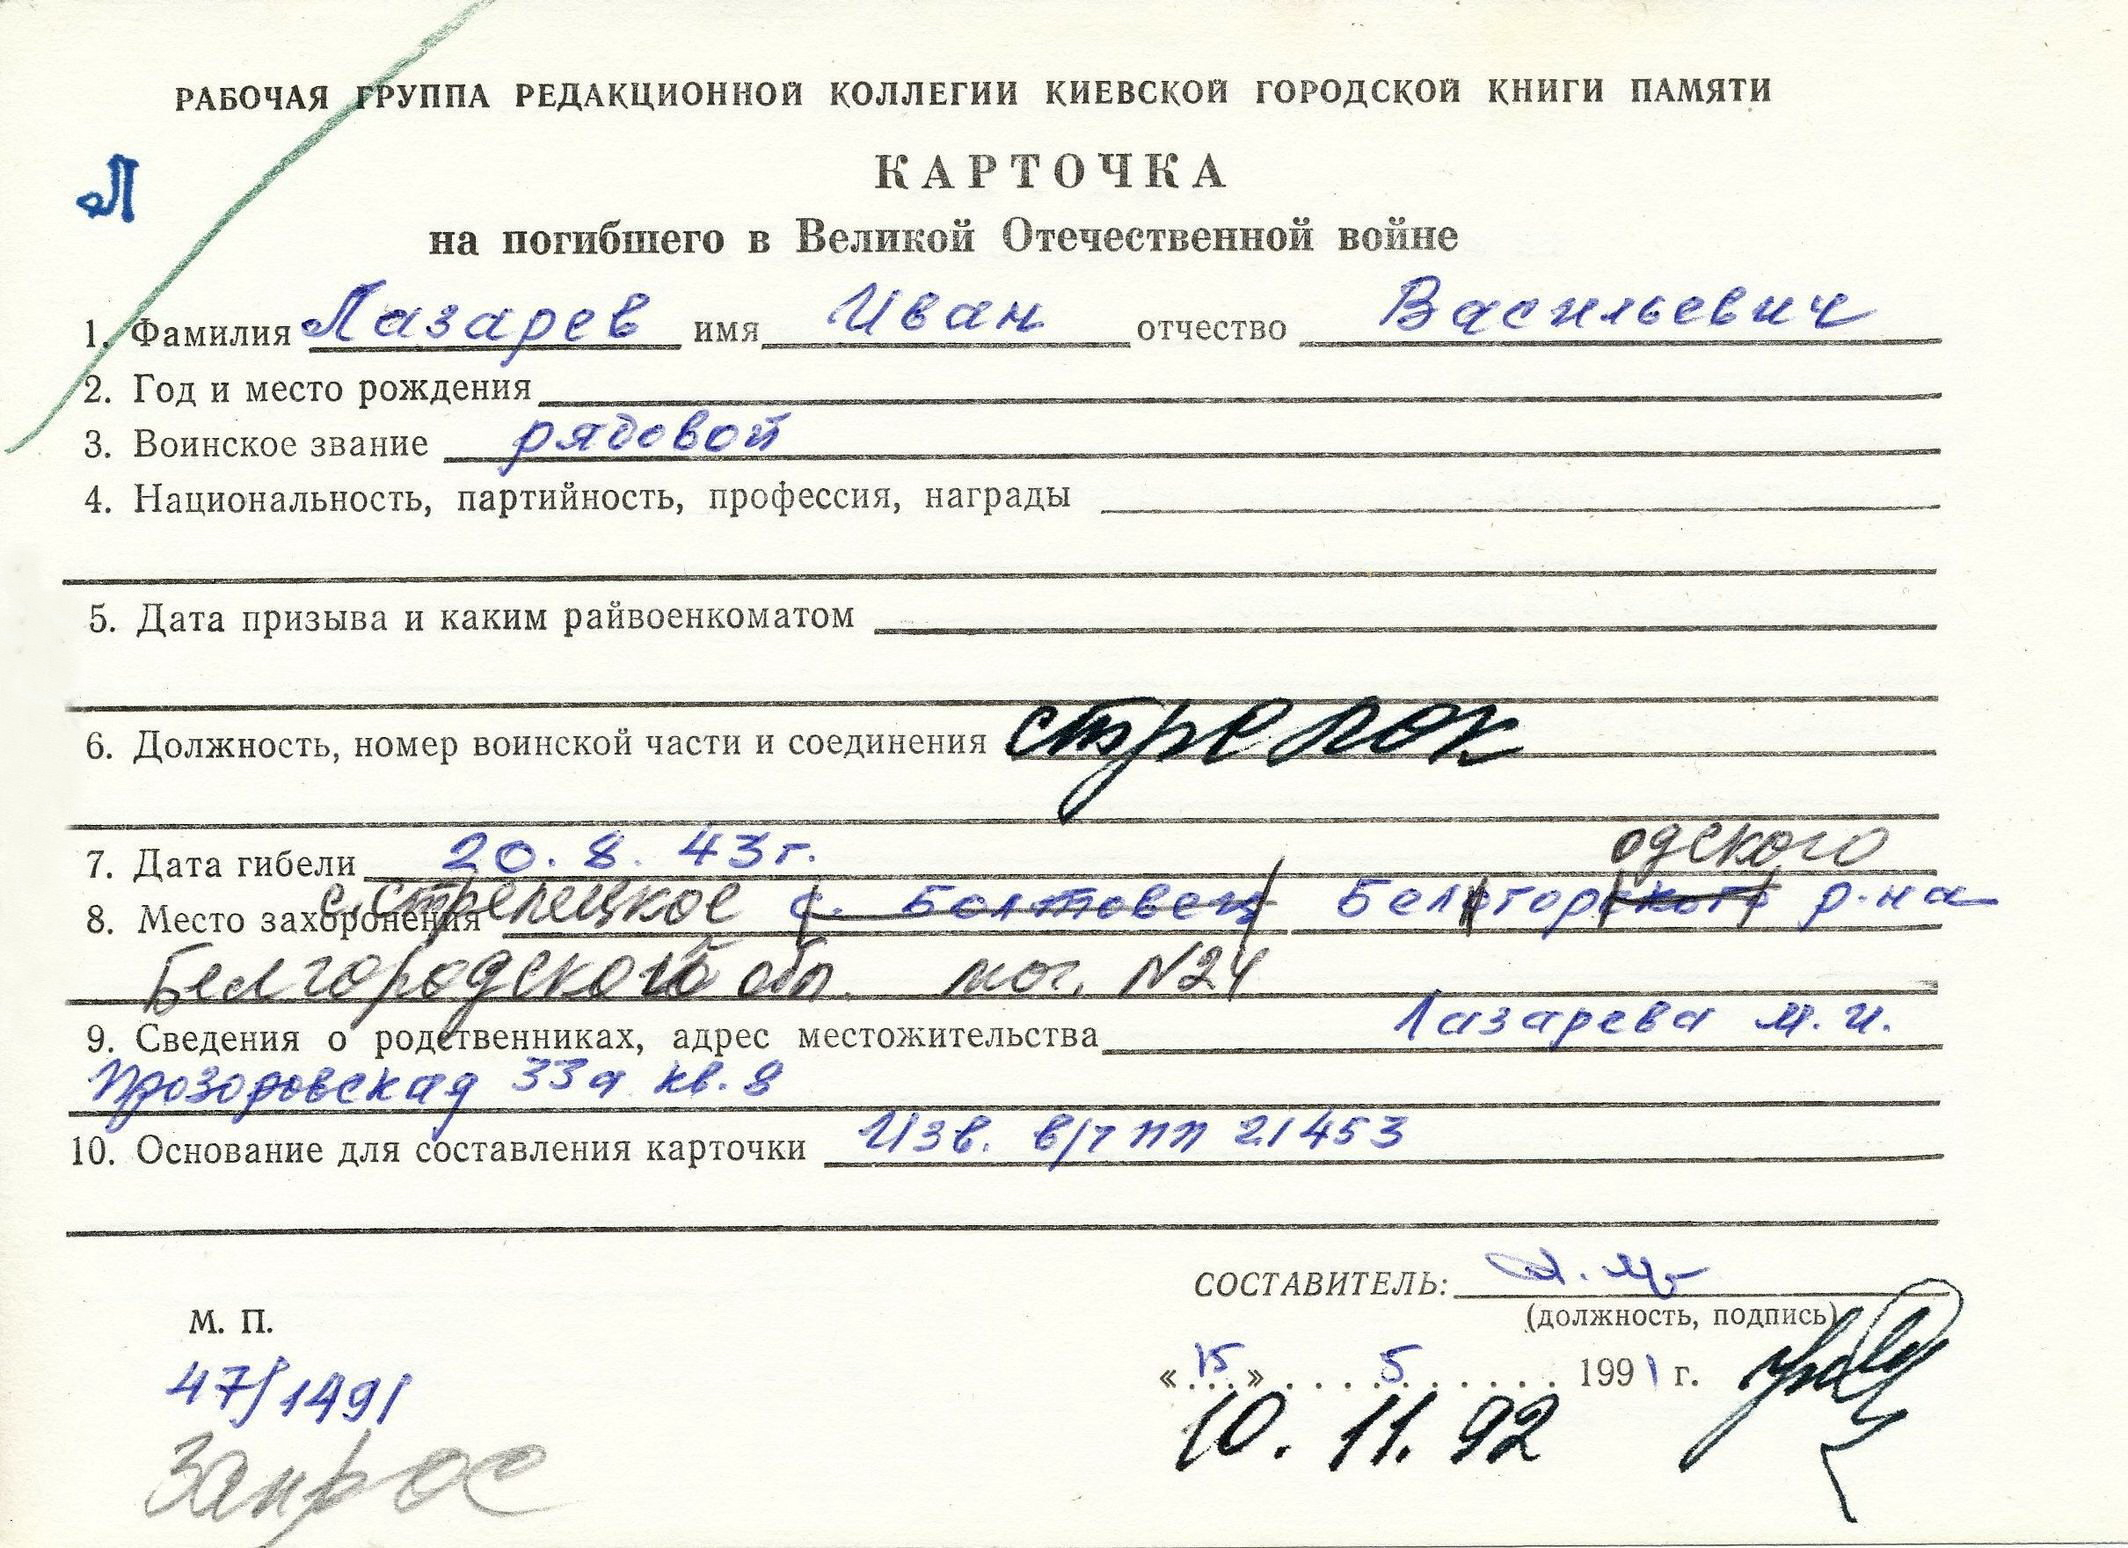 РАБОЧАЯ ГРУППА РЕДАКЦИОННОЙ КОЛЛЕГИИ КИЕВСКОЙ ГОРОДСКОЙ КНИГИ ПАМЯТИ
Л
КАРТОЧКА
на погибшего в Великой Отечественной войне
1. Фамилия Лазарев имя Иван отчество Васильевич
2. Год и место рождения
3. Воинское звание рядовой
4. Национальность, партийность, профессия, награды
5. Дата призыва и каким райвоенкоматом
6. Должность, номер воинской части и соединения стрелок
7. Дата гибели 20.8.43г.
одского
8. Место захоронения с. стрелецкое с. Болтовец Белогорского р-на
Белгородской обл. мог. N24
9. Сведения о родственниках, адрес местожительства Лазарева М.И.
Прозоровская 33а кв. 8
10. Основание для составления карточки Изв. в/ч пп 21453
СОСТАВИТЕЛЬ:
(должность, подпись)
М. П.
«15» 5 1991 г.
47/1491
10. 11. 92
Запрос